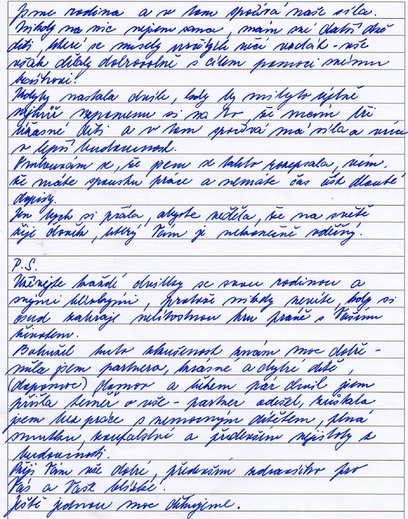 Jsme rodina a v tom spočívá naše síla.
Nikdy na nic nejsem sama, mám své další dvě
děti, které se musely
však dělaly dobrovolně s cílem pomoci svému
bratrovi.
Kdyby nastala chvíle, kdy by mi bylo
nejhůř vzpomenu si na to, že mám tři
úžasné děti a v tom spočívá má síla a víra
v lepší budoucnost.
Omlouvám se, že jsem se takto rozepsala, vím,
že máte spoustu práce a nemáte čas číst dlouhé
dopisy.
Jen bych si přála, abyste věděla, že na světě
žije člověk, který Vám je nekonečně vděčný.
P.S.
Užívejte každé chvilky se svou rodinou a
svými blízkými, protože nikdy nevíte, kdy si
osud zahraje nelítostnou hru právě s Vaším
životem.
Bohužel tuto zkušenost znám moc dobře -
měla jsem partnera, krásné a chytré dítě,
domov a během pár chvil jsem
přišla téměř o vše - partner odešel, zůstala
jsem bez práce s nemocným dítětem, plná
smutku, zoufalství a především nejistoty z
budoucnosti.
Přeji Vám vše dobré, především zdravíčko pro
Vás a Vaše blízké.
Ještě jednou moc děkujeme.